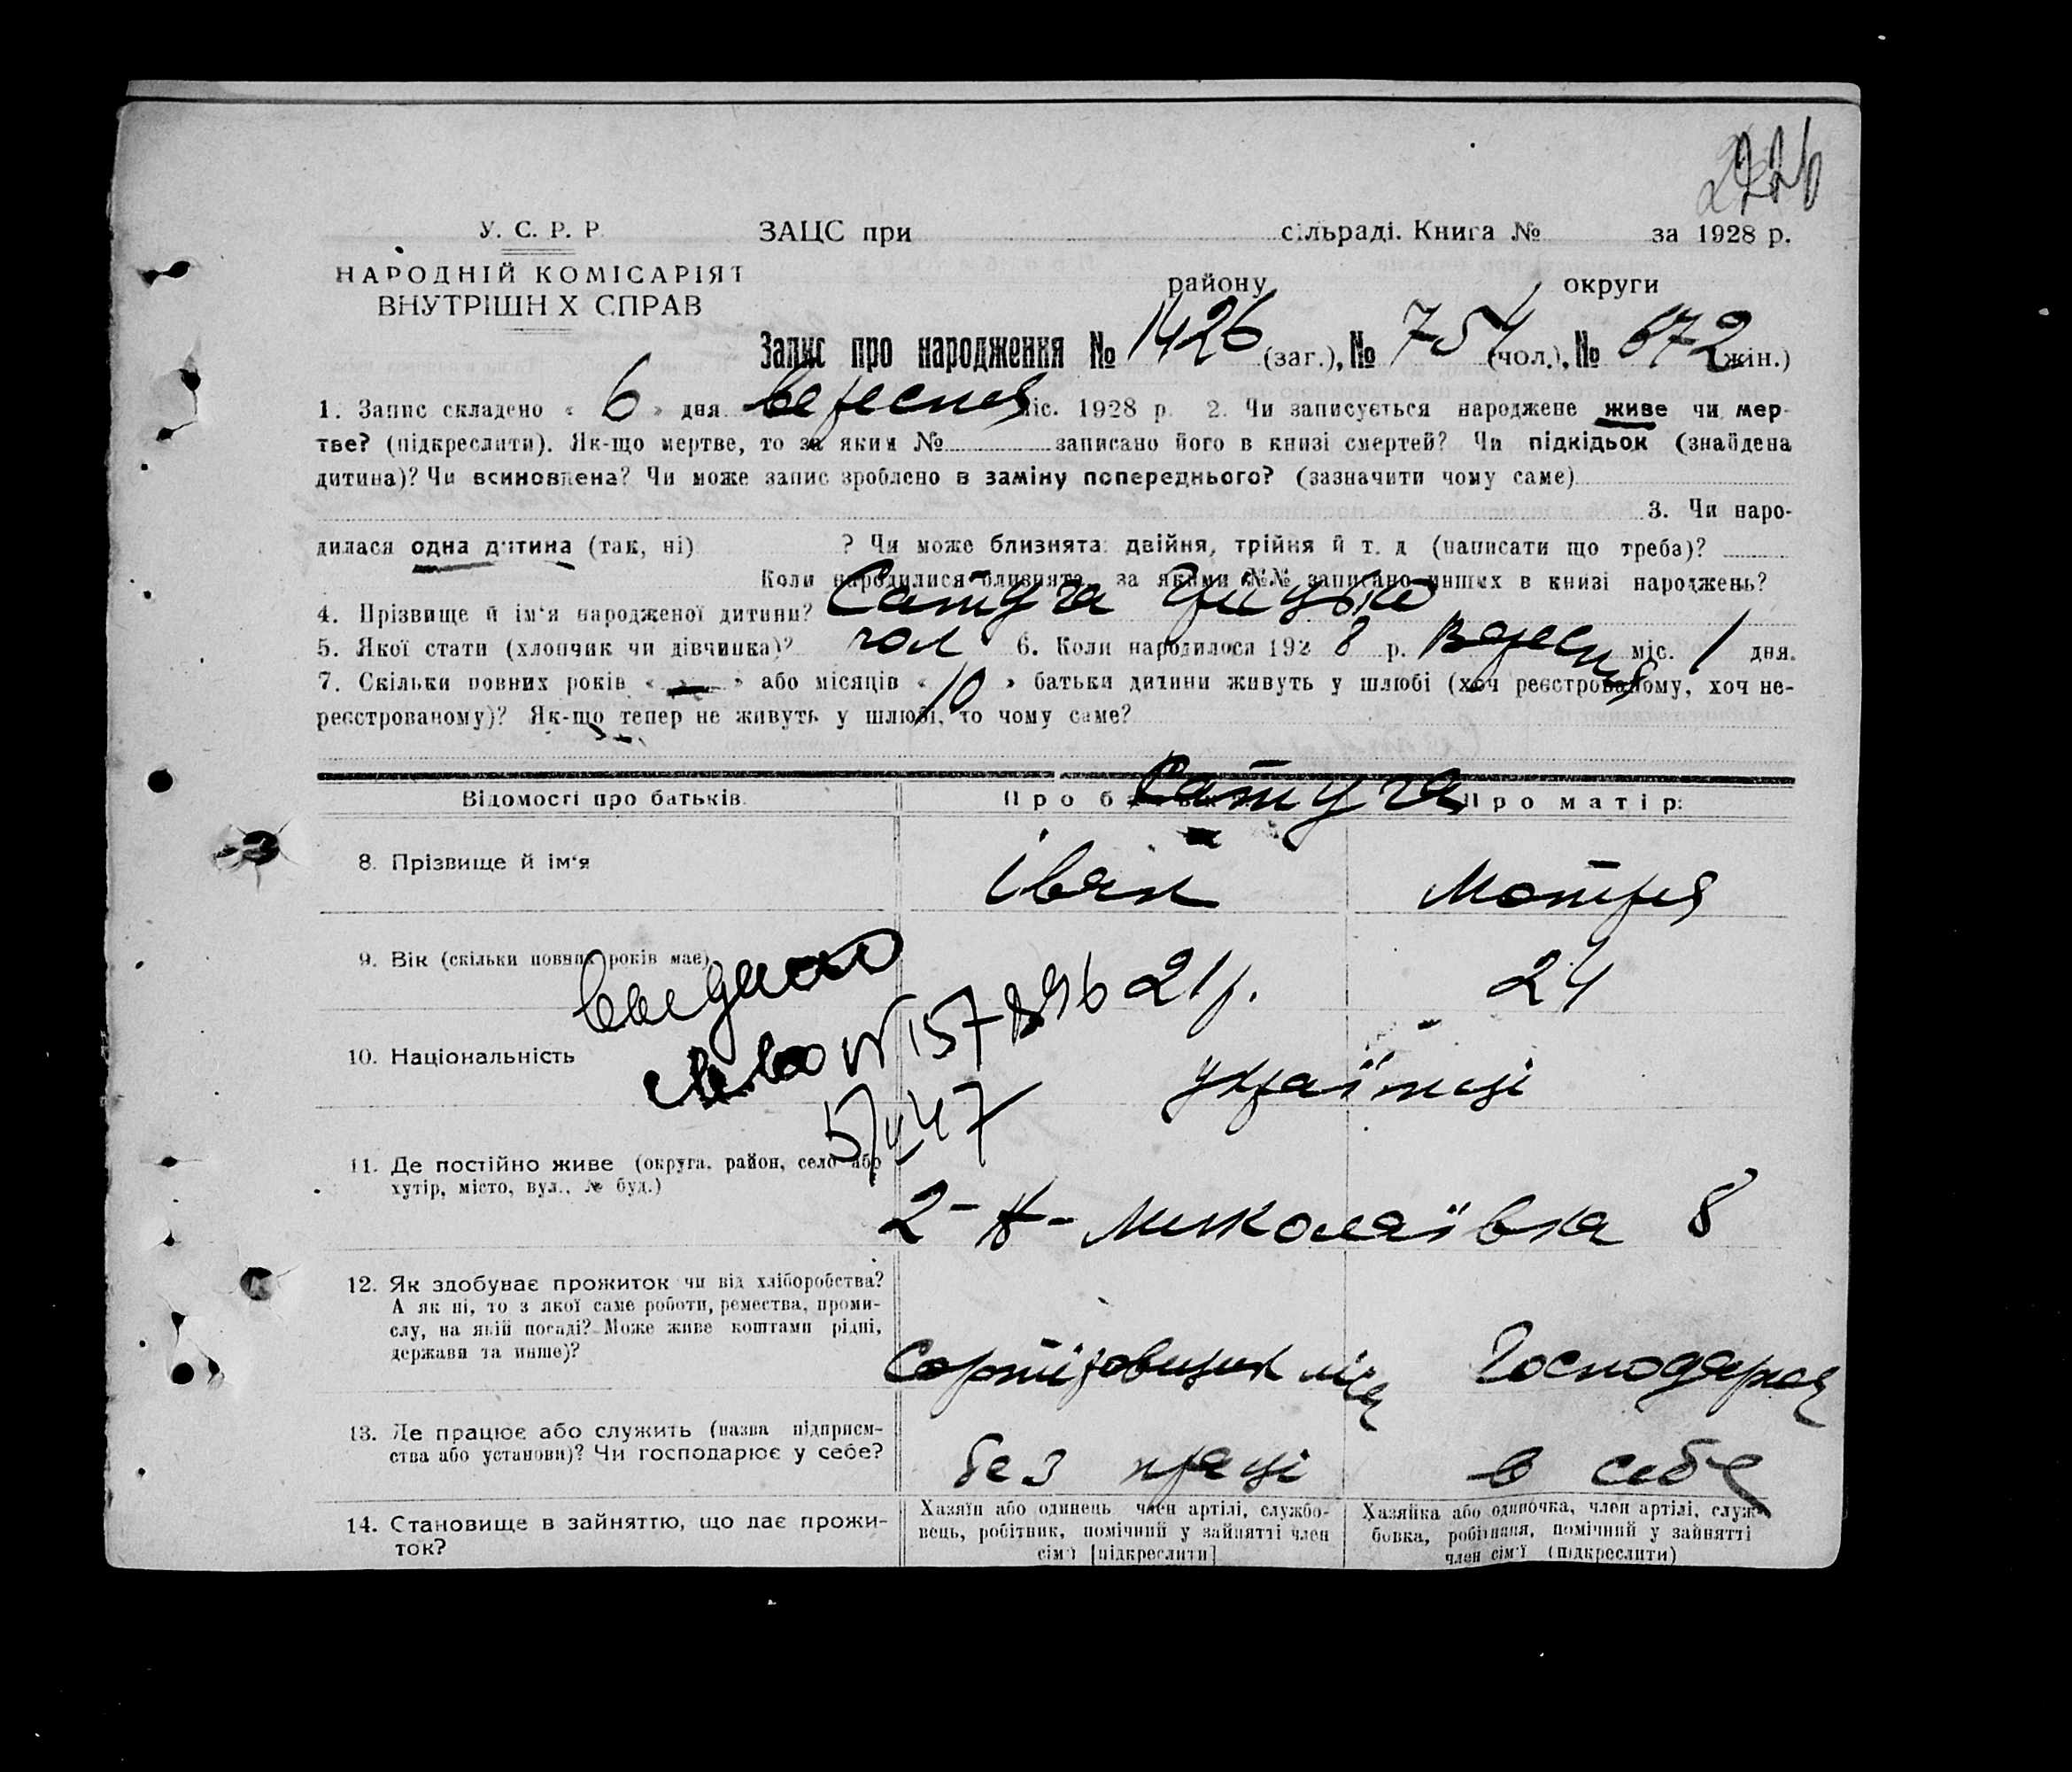 226
У. С. Р. Р.
ЗАЦС при сільраді. Книга № за 1928 р.
НАРОДНІЙ КОМІСАРІЯТ
ВНУТРІШН Х СПРАВ
району округи
Запис про народження № 1426 (заг.), № 754 (чол.), № 672 (жін.)
1. Запис складено « 6 » дня вересня міс. 1928 р. 2. Чи записується народжене живе чи мер-
тве? (підкреслити). Як-що мертве, то за яким № записано його в книзі смертей? Чи підкідьок (знайдена
дитина)? Чи всиновлена? Чи може запис зроблено в заміну попереднього? (зазначити чому саме)
3. Чи наро-
дилася одна дитина (так, ні) ? Чи може близнята: двійня, трійня й т. д (написати що треба)?
Коли народилися близнята, за якими №№ записано инших в книзі народжень?
4. Прізвище й ім‘я народженої дитини? Сатуга
5. Якої стати (хлопчик чи дівчинка)? чол 6. Коли народилося 192 8 р. Вересня міс. 1 дня.
7. Скільки повних років « — » або місяців « 10 » батьки дитини живуть у шлюбі (хоч реєстрованому, хоч не-
реєстрованому)? Як-що тепер не живуть у шлюбі, то чому саме?
Сатуга
Відомості про батьків. Про б Про матір:
8. Прізвище й ім‘я Іван Мотря
9. Вік (скільки повних років має) 21 р. 24
видано
св-во № 157896
10. Національність українці
5/V 47
11. Де постійно живе (округа, район, село або
хутір, місто, вул., № буд.)
2-а- Миколаївка 8
12. Як здобуває прожиток чи від хліборобства?
А як ні, то з якої саме роботи, ремества, проми-
слу, на якій посаді? Може живе коштами рідні,
держави та инше)?
Сортіровщик Господарка
13. Де працює або служить (назва підприєм-
ства або установи)? Чи господарює у себе?
без праці в себе
14. Становище в зайняттю, що дає прожи-
ток?
Хазяїн або одинець член артілі, службо-
вець, робітник, помічний у зайнятті член
сім‘ї [підкреслити]
Хазяйка або одиночка, член артілі, служ-
бовка, робітниця, помічний у зайнятті
член сім‘ї (підкреслити)